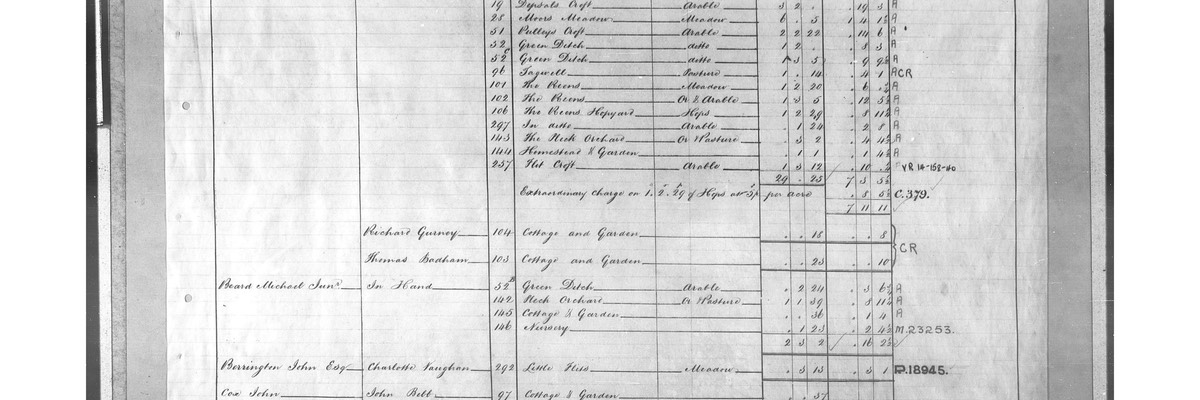 19 Depsols Croft Arable 3 2 . . 19 3 A
28 Moors Meadow Meadow 6 . 5 1 4 1½ A
51 Pulleys Croft Arable 2 2 22 . 14 6 A
52 Green Ditch ditto 1 2 . . 8 3 A
52 Green Ditch ditto 1 3 5 . 9 A
96 Tagwell Pasture 1 . 14 . 4 1 ACR
101 The Reens Meadow 1 2 20 . 6 A
102 The Reens Or & Arable 1 3 5 . 12 A
106 The Reens Hopyard Hops 1 2 29 . 8 A
297 In ditto Arable . 1 24 . 2 8 A
143 The Neck Orchard Or Pasture . 3 2 . 4 A
144 Homestead & Garden . 1 1 . 1 A
257 Flit Croft Arable 1 3 12 . 10 VR 14-158-40
29 . 25 7 3
Extraordinary charge on 1. 2. 29 of Hops at per acre . 8 C.379.
7 11 11
Richard Gurney 104 Cottage and Garden . . 18 . . 8
CR
Thomas Badham 103 Cottage and Garden . . 23 . . 10
Beard Michael Junr. In Hand 52 Green Ditch Arable . 2 24 . 3 A
142 Neck Orchard Or Pasture 1 1 39 . 8 A
145 Cottage & Garden . . 36 . 1 4 A
146 Nursery . 1 23 . 2 M.23253.
2 3 2 . 16
Berrington John Esq Charlotte Vaughan 292 Little Meadow . 3 13 . 3 1 P.18945.
Cox John John Bebb 97 Cottage & Garden . . 37